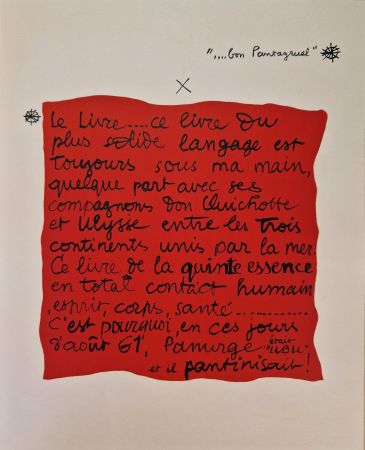 "....bon Pantagruel"
Le Livre....ce livre du
plus solide langage est
toujours sous ma main,
quelque part avec ses
compagnons Don Quichotte
et Ulysse entre les trois
continents unis par la mer.
Ce livre de la quinte essence
en total contact humain
,esprit, corps, santé...........
C'est pourquoi, en ces jours
d'août 61, Panurge était "UBU"
et il pantinisait!